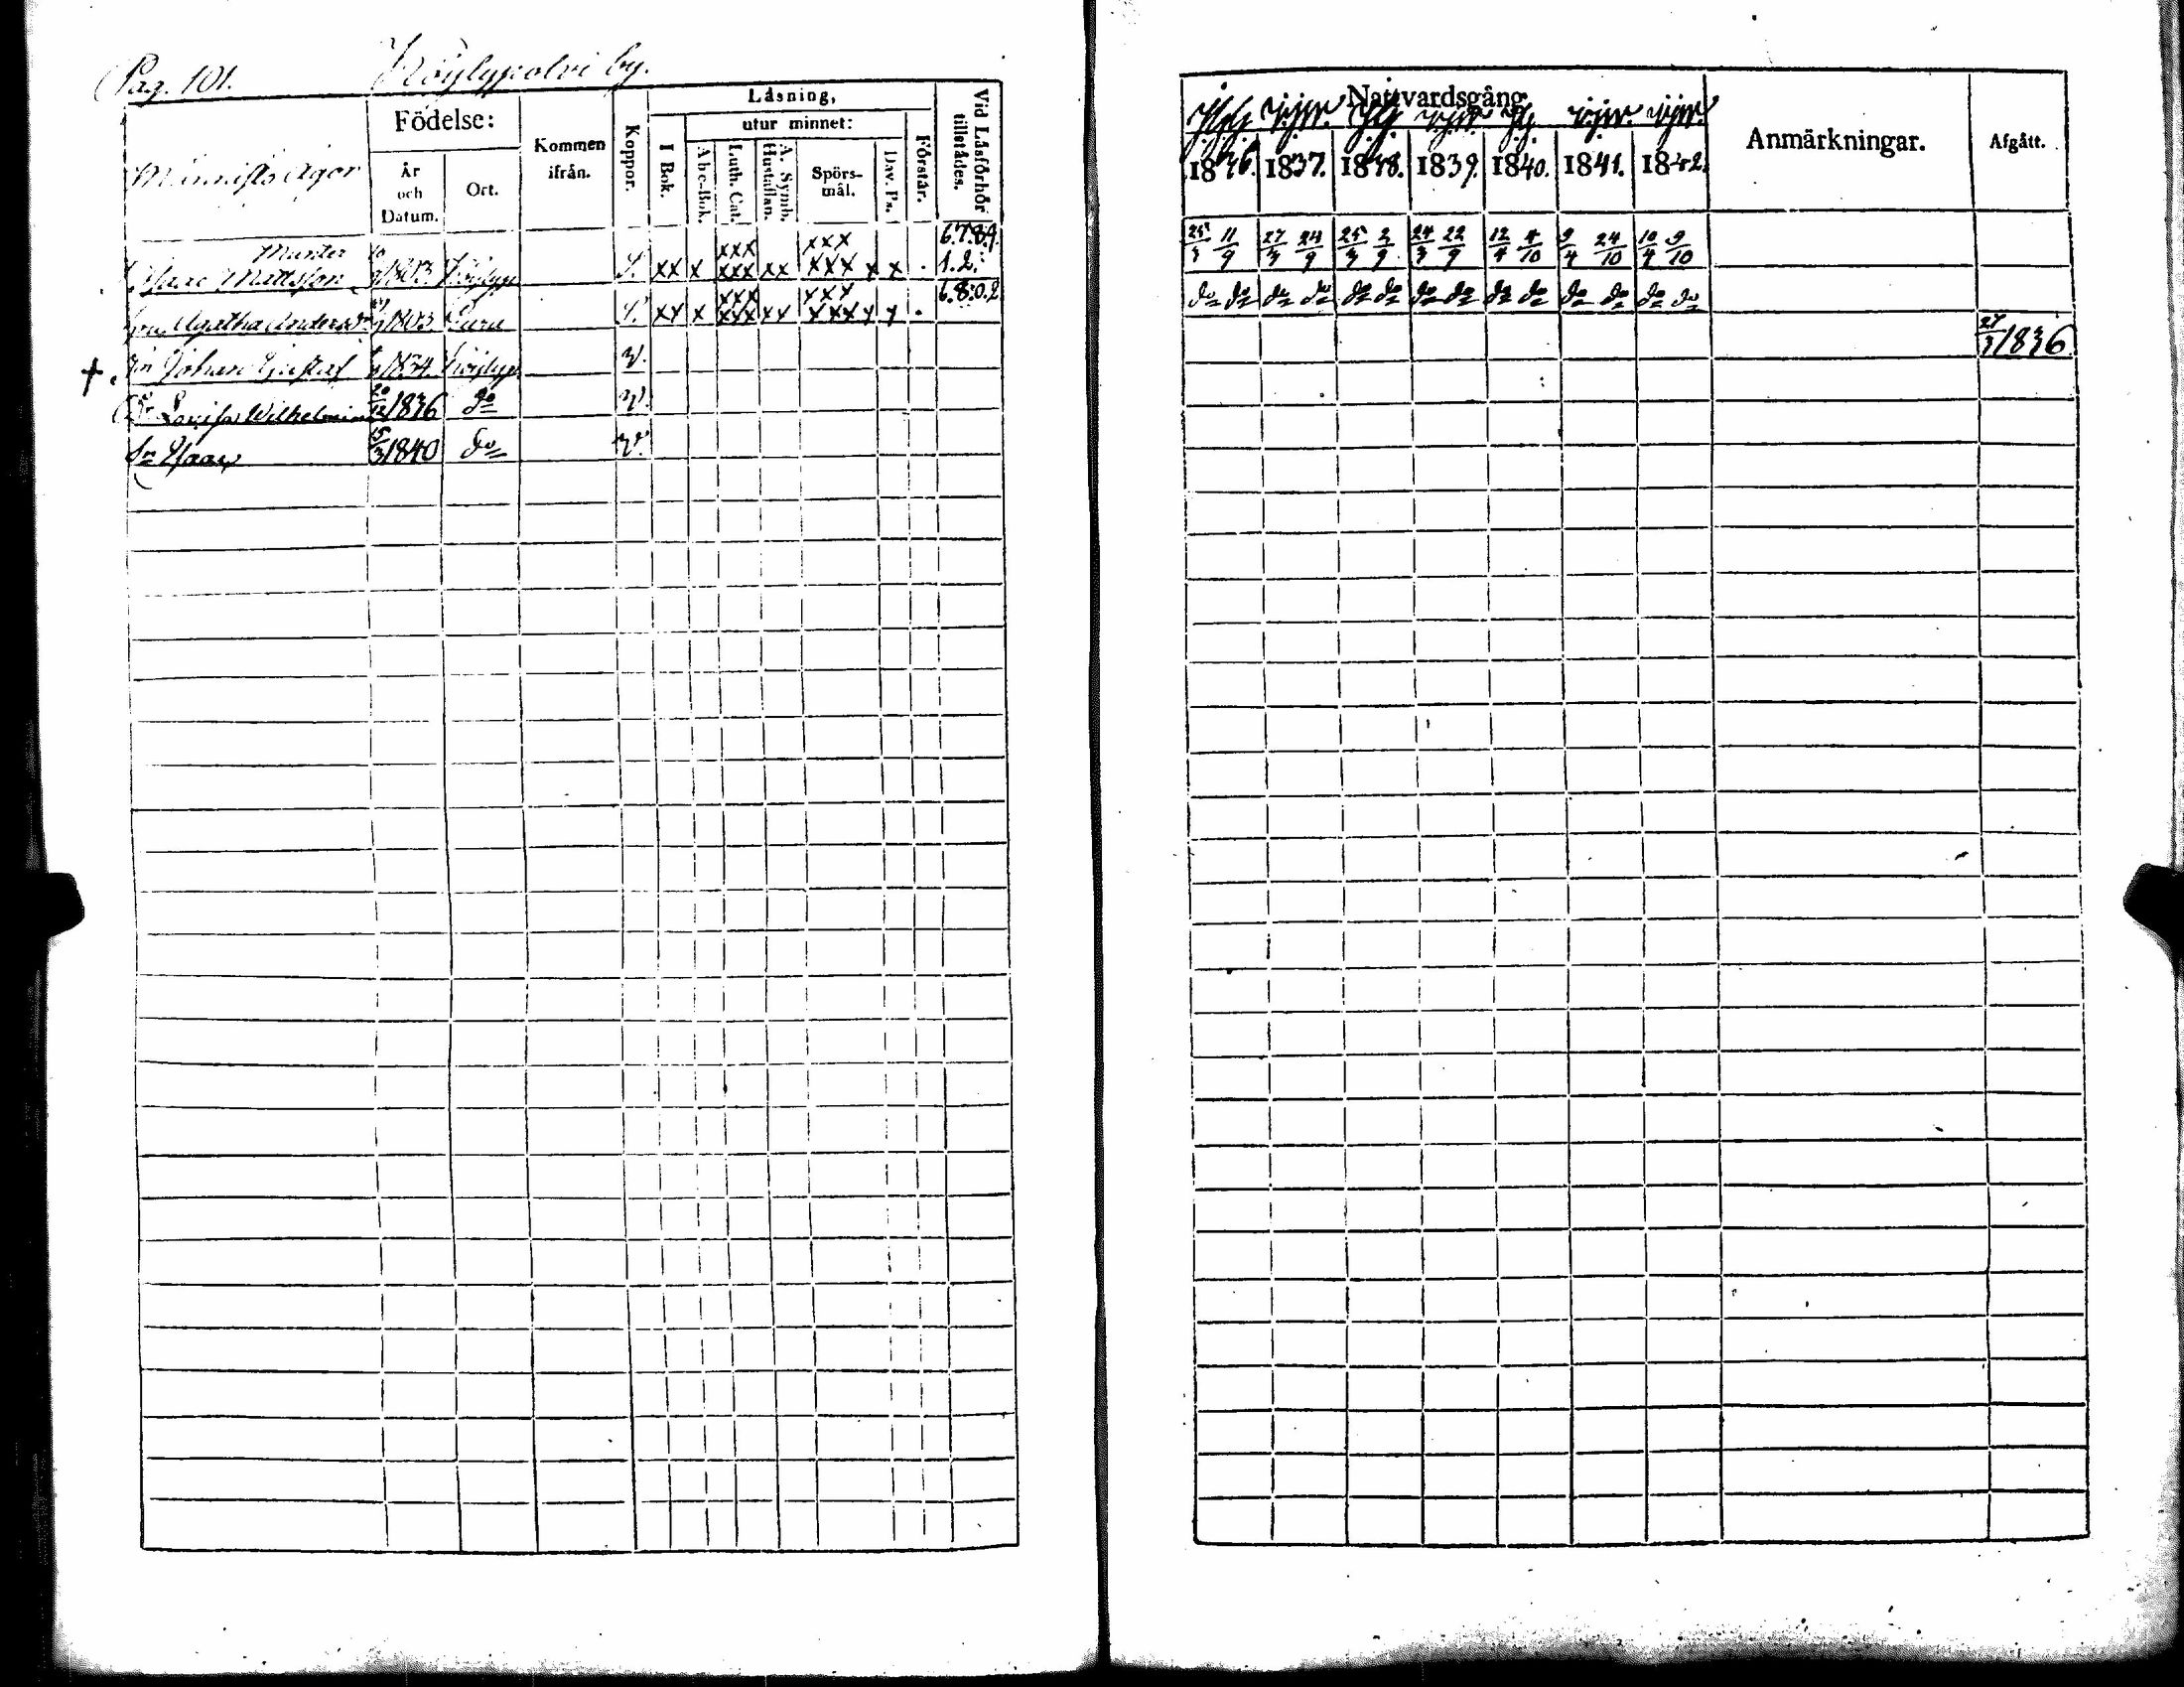 Pag. 101. Köylypolvi by.
Männistö Ägor
Födelse:
År och Datum.
Ort.
Kommen ifrån.
Koppor.
Läsning,
I Bok.
utur minnet:
Abc-Bok.
Luth. Cat.
A. Symb. Hustaflan.
Spörs-mål.
Dav. Ps.
Förstår.
Vid Läsförhör tillstädes.
Munter
Isaac Mattsson 1803 S. xx x xxx xxx xx xxx xxx x x . 6.7.8.9. 1.2.
Agatha Andersdr 1803 Eura S. xx x xxx xxx xx xxx xxx x x . 6.8.0.2
+ Sn Johan Gustaf 1834 v.
Dr Lovisa Wilhelmina 20/12 1836 do v.
Sn Isaac 15/3 1840 do v.
Nattvardsgång.
1836. 1837. 1838. 1839. 1840. 1841. 1842.
Anmärkningar.
Afgått.
25/3 11/9 27/3 24/9 25/3 2/9 24/3 22/9 12/4 4/10 9/4 24/10 10/4 9/10
do do do do do do do do do do do do do do
27/3 1836